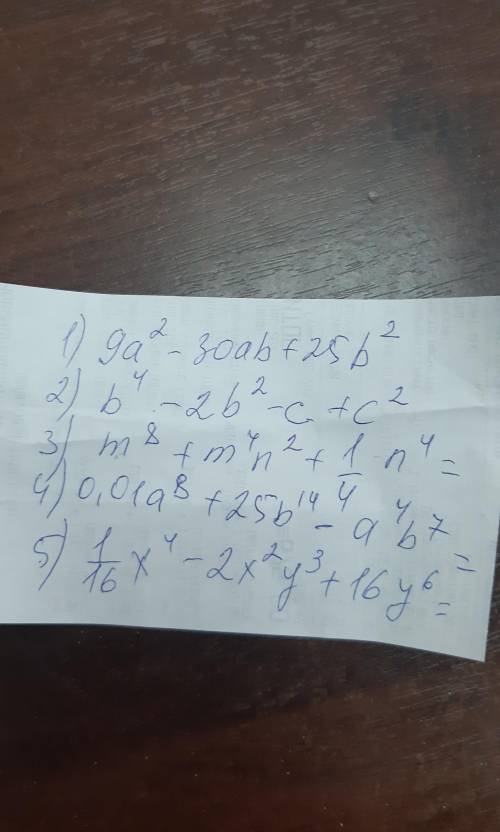 1) 9a² - 30ab + 25b²
2) b⁴ - 2b² - c + c²
3) m⁸ + m⁴n² + 1/4 n⁴ =
4) 0,01a⁸ + 25b¹⁴ - a⁴b⁷ =
5) 1/16 x⁴ - 2x²y³ + 16y⁶ =